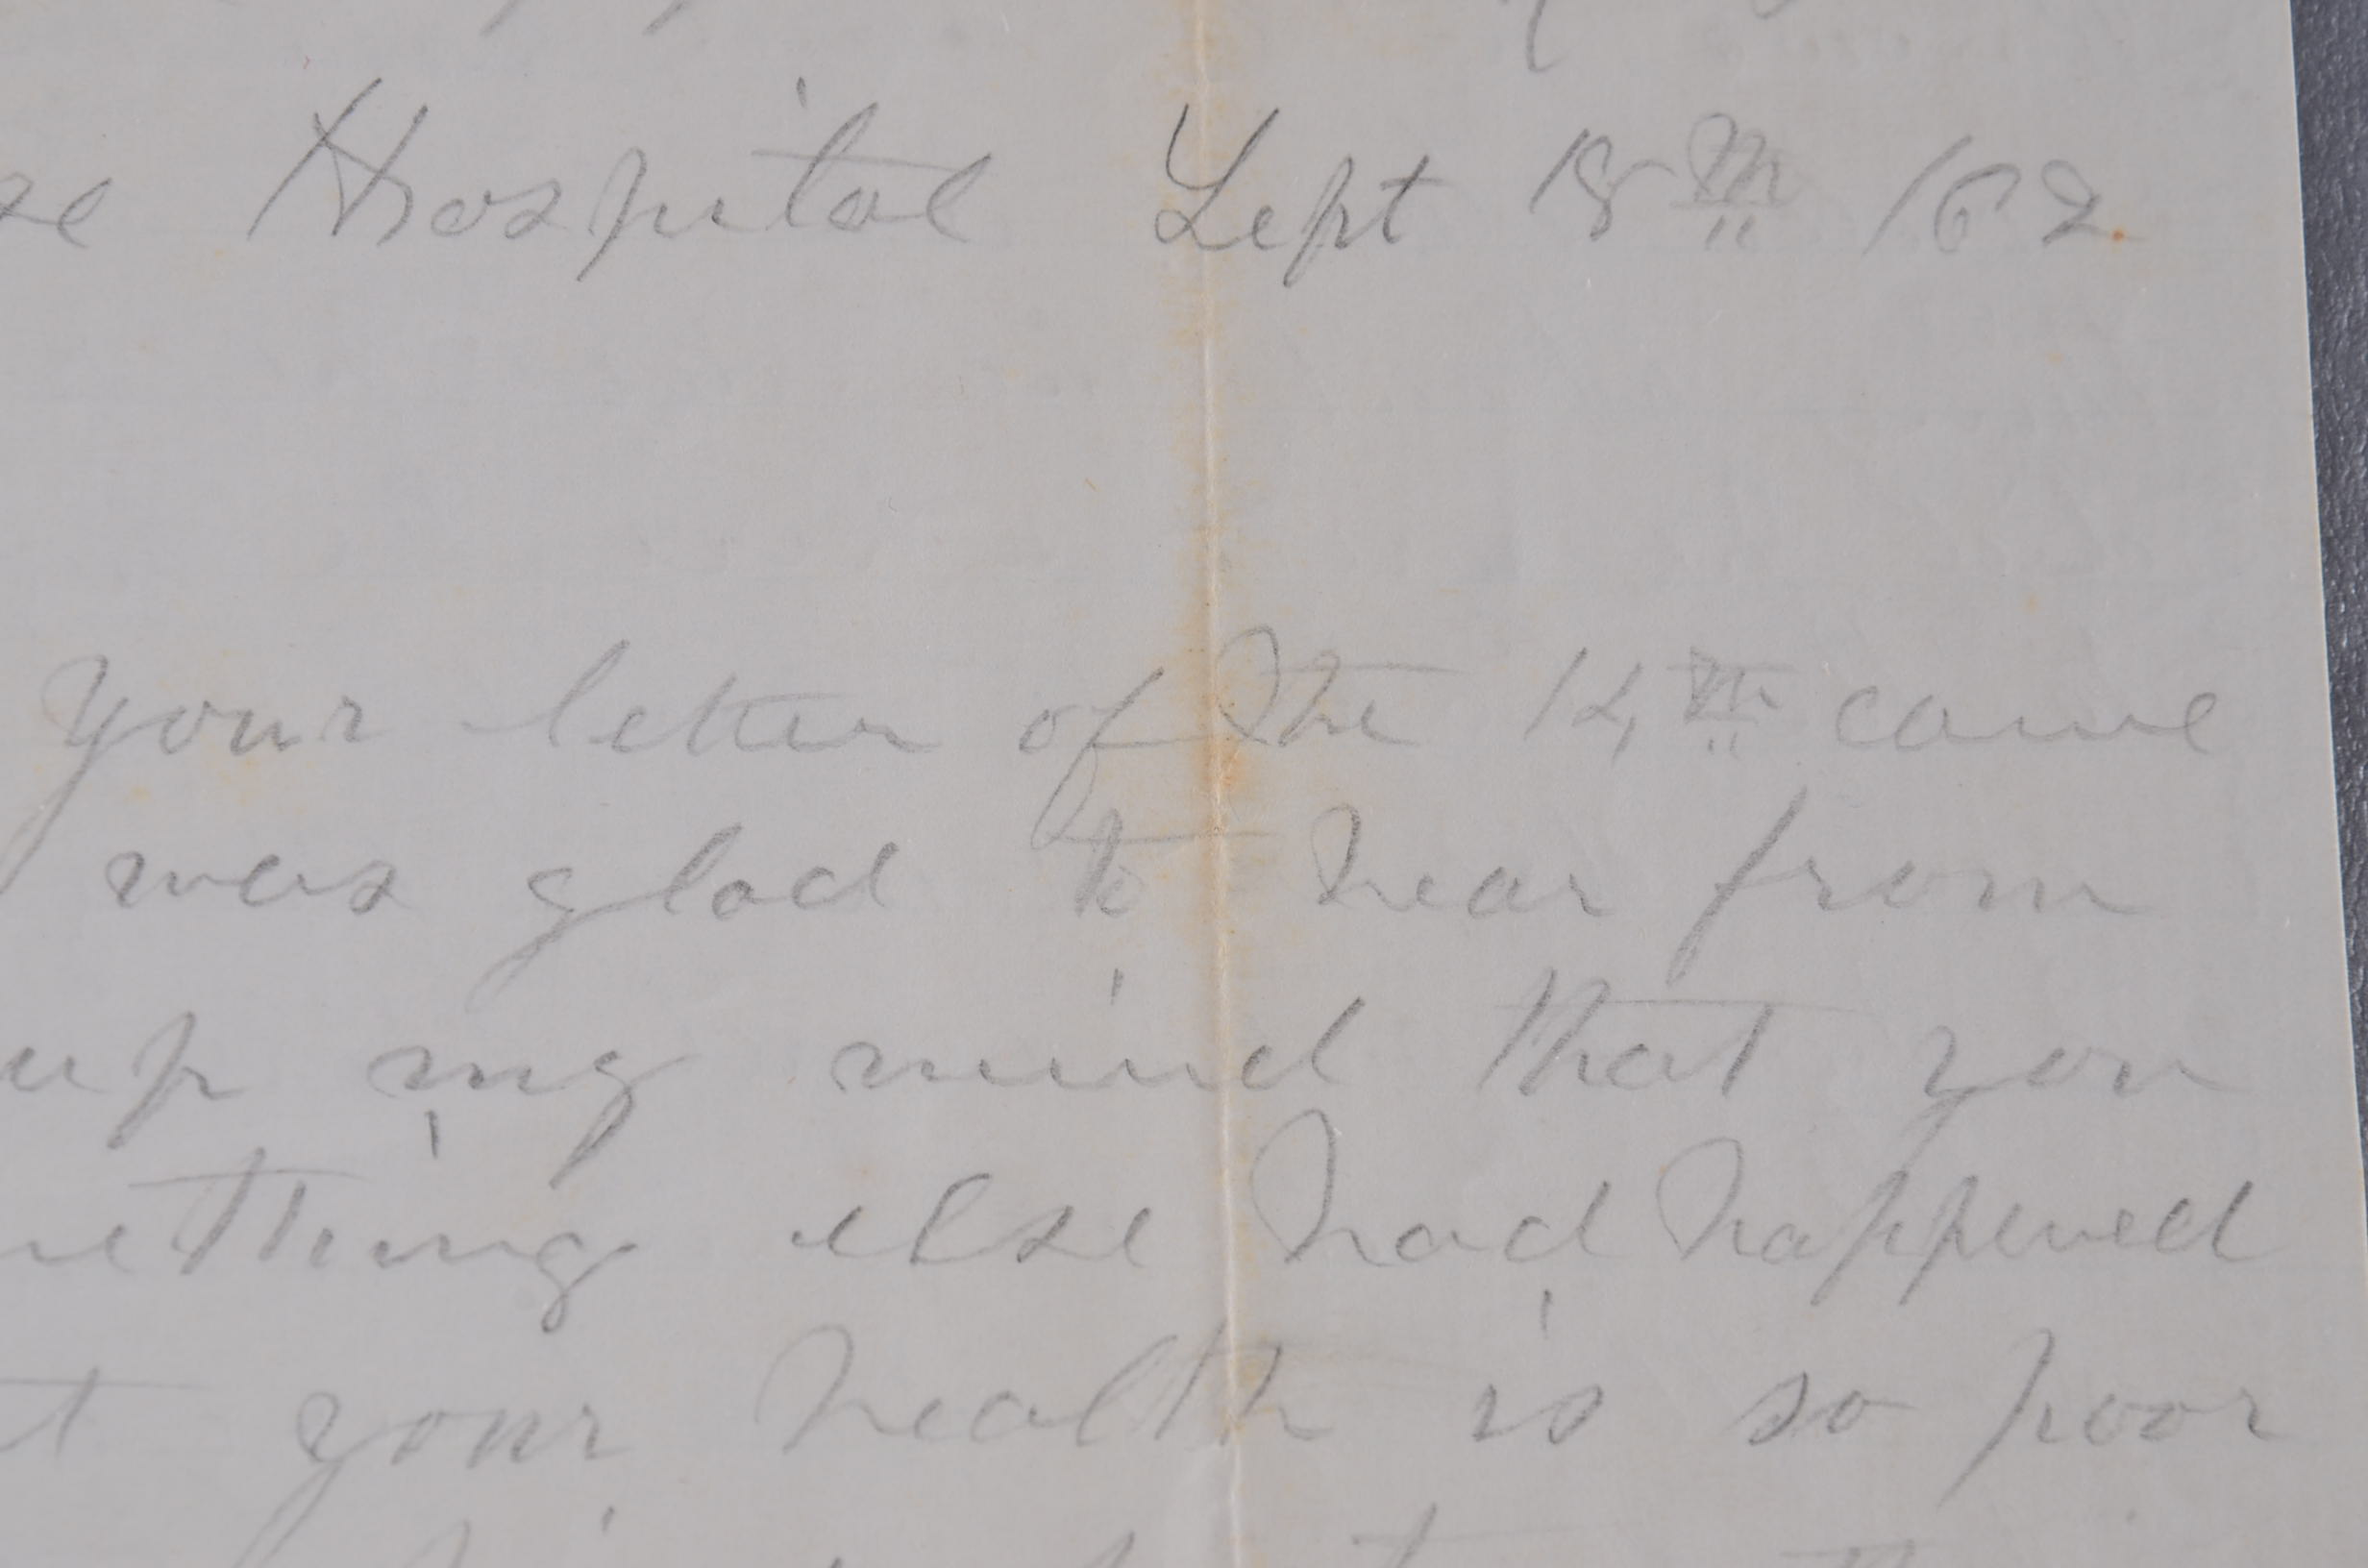 se Hospital Sept 18th /62.
your letter of the 14th came
was glad to hear from
up my mind that you
mething else had happened
t your health is so poor